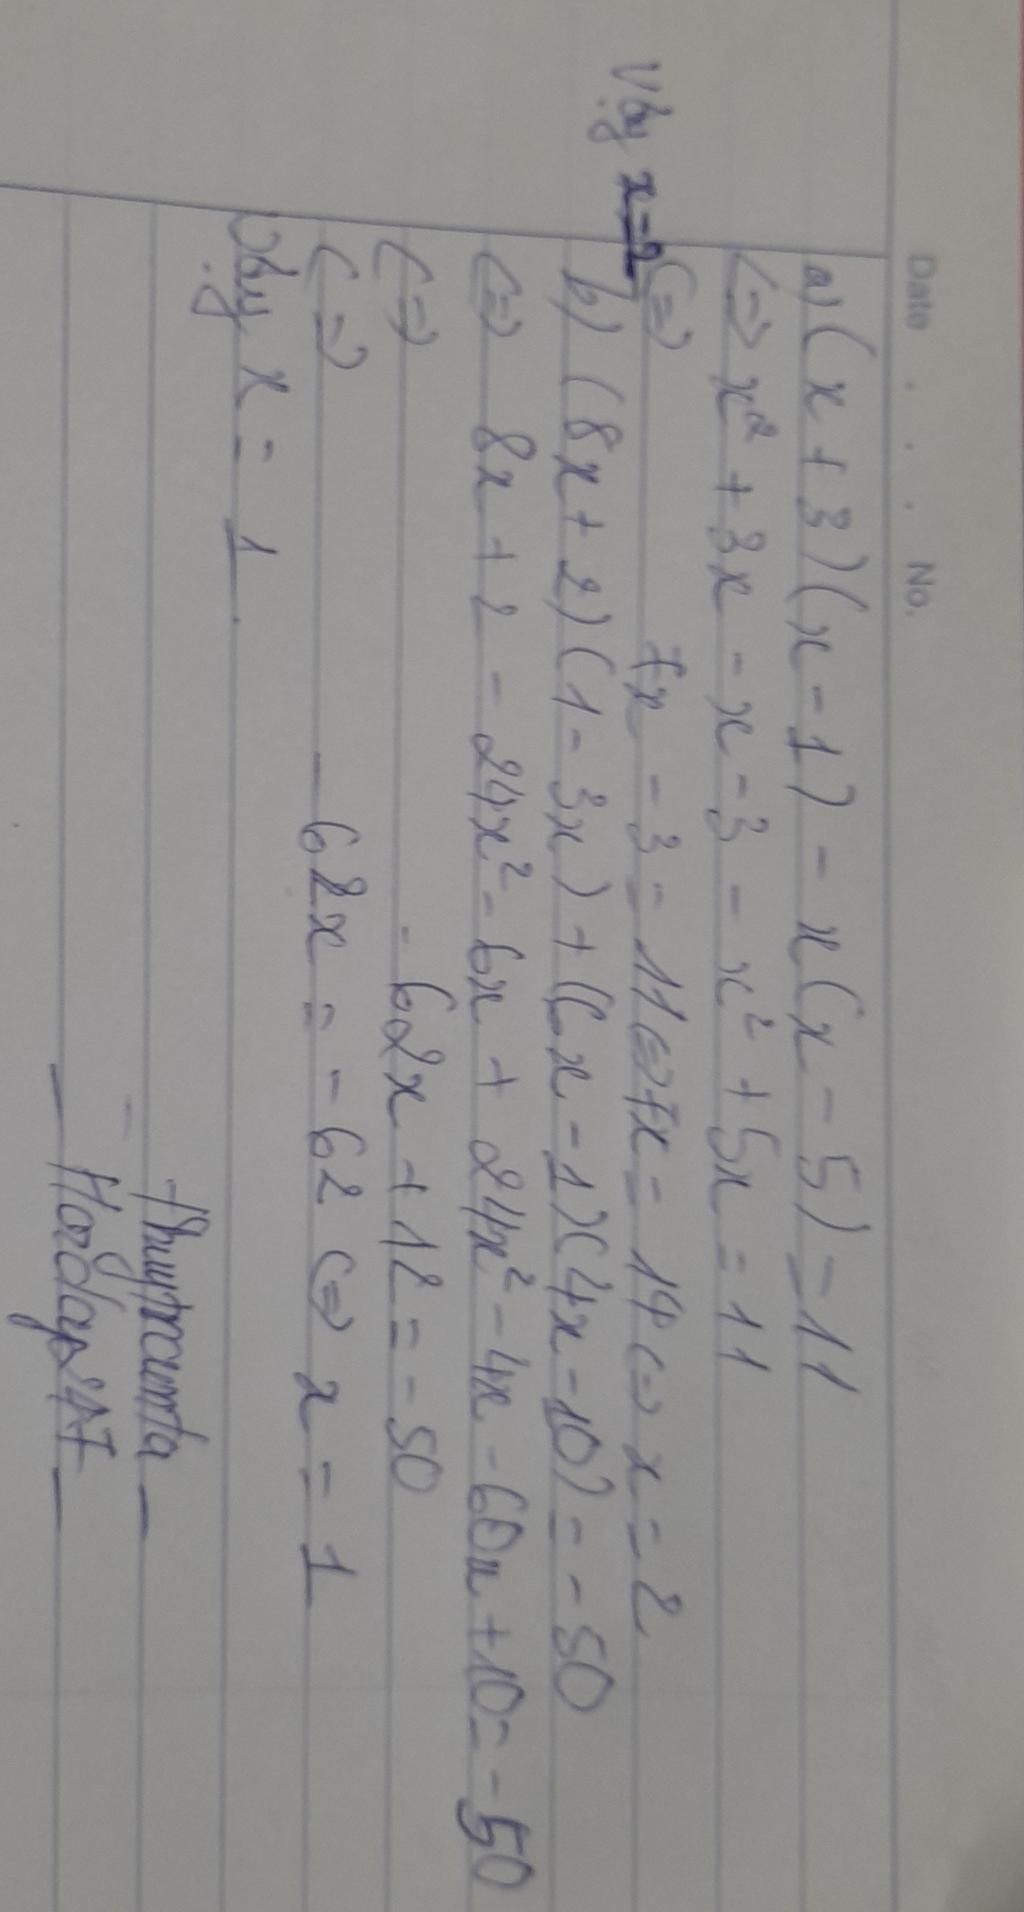 Date . . . No.
a) (x + 3)(x - 1) - x(x - 5) = 11
<=> x² + 3x - x - 3 - x² + 5x = 11
<=> 7x - 3 = 11 <=> 7x = 14 <=> x = 2
Vậy x = 2
b) (8x + 2)(1 - 3x) + (6x - 1)(4x - 10) = -50
<=> 8x + 2 - 24x² - 6x + 24x² - 4x - 60x + 10 = -50
<=> -62x + 12 = -50
<=> -62x = -62 <=> x = 1
Vậy x = 1